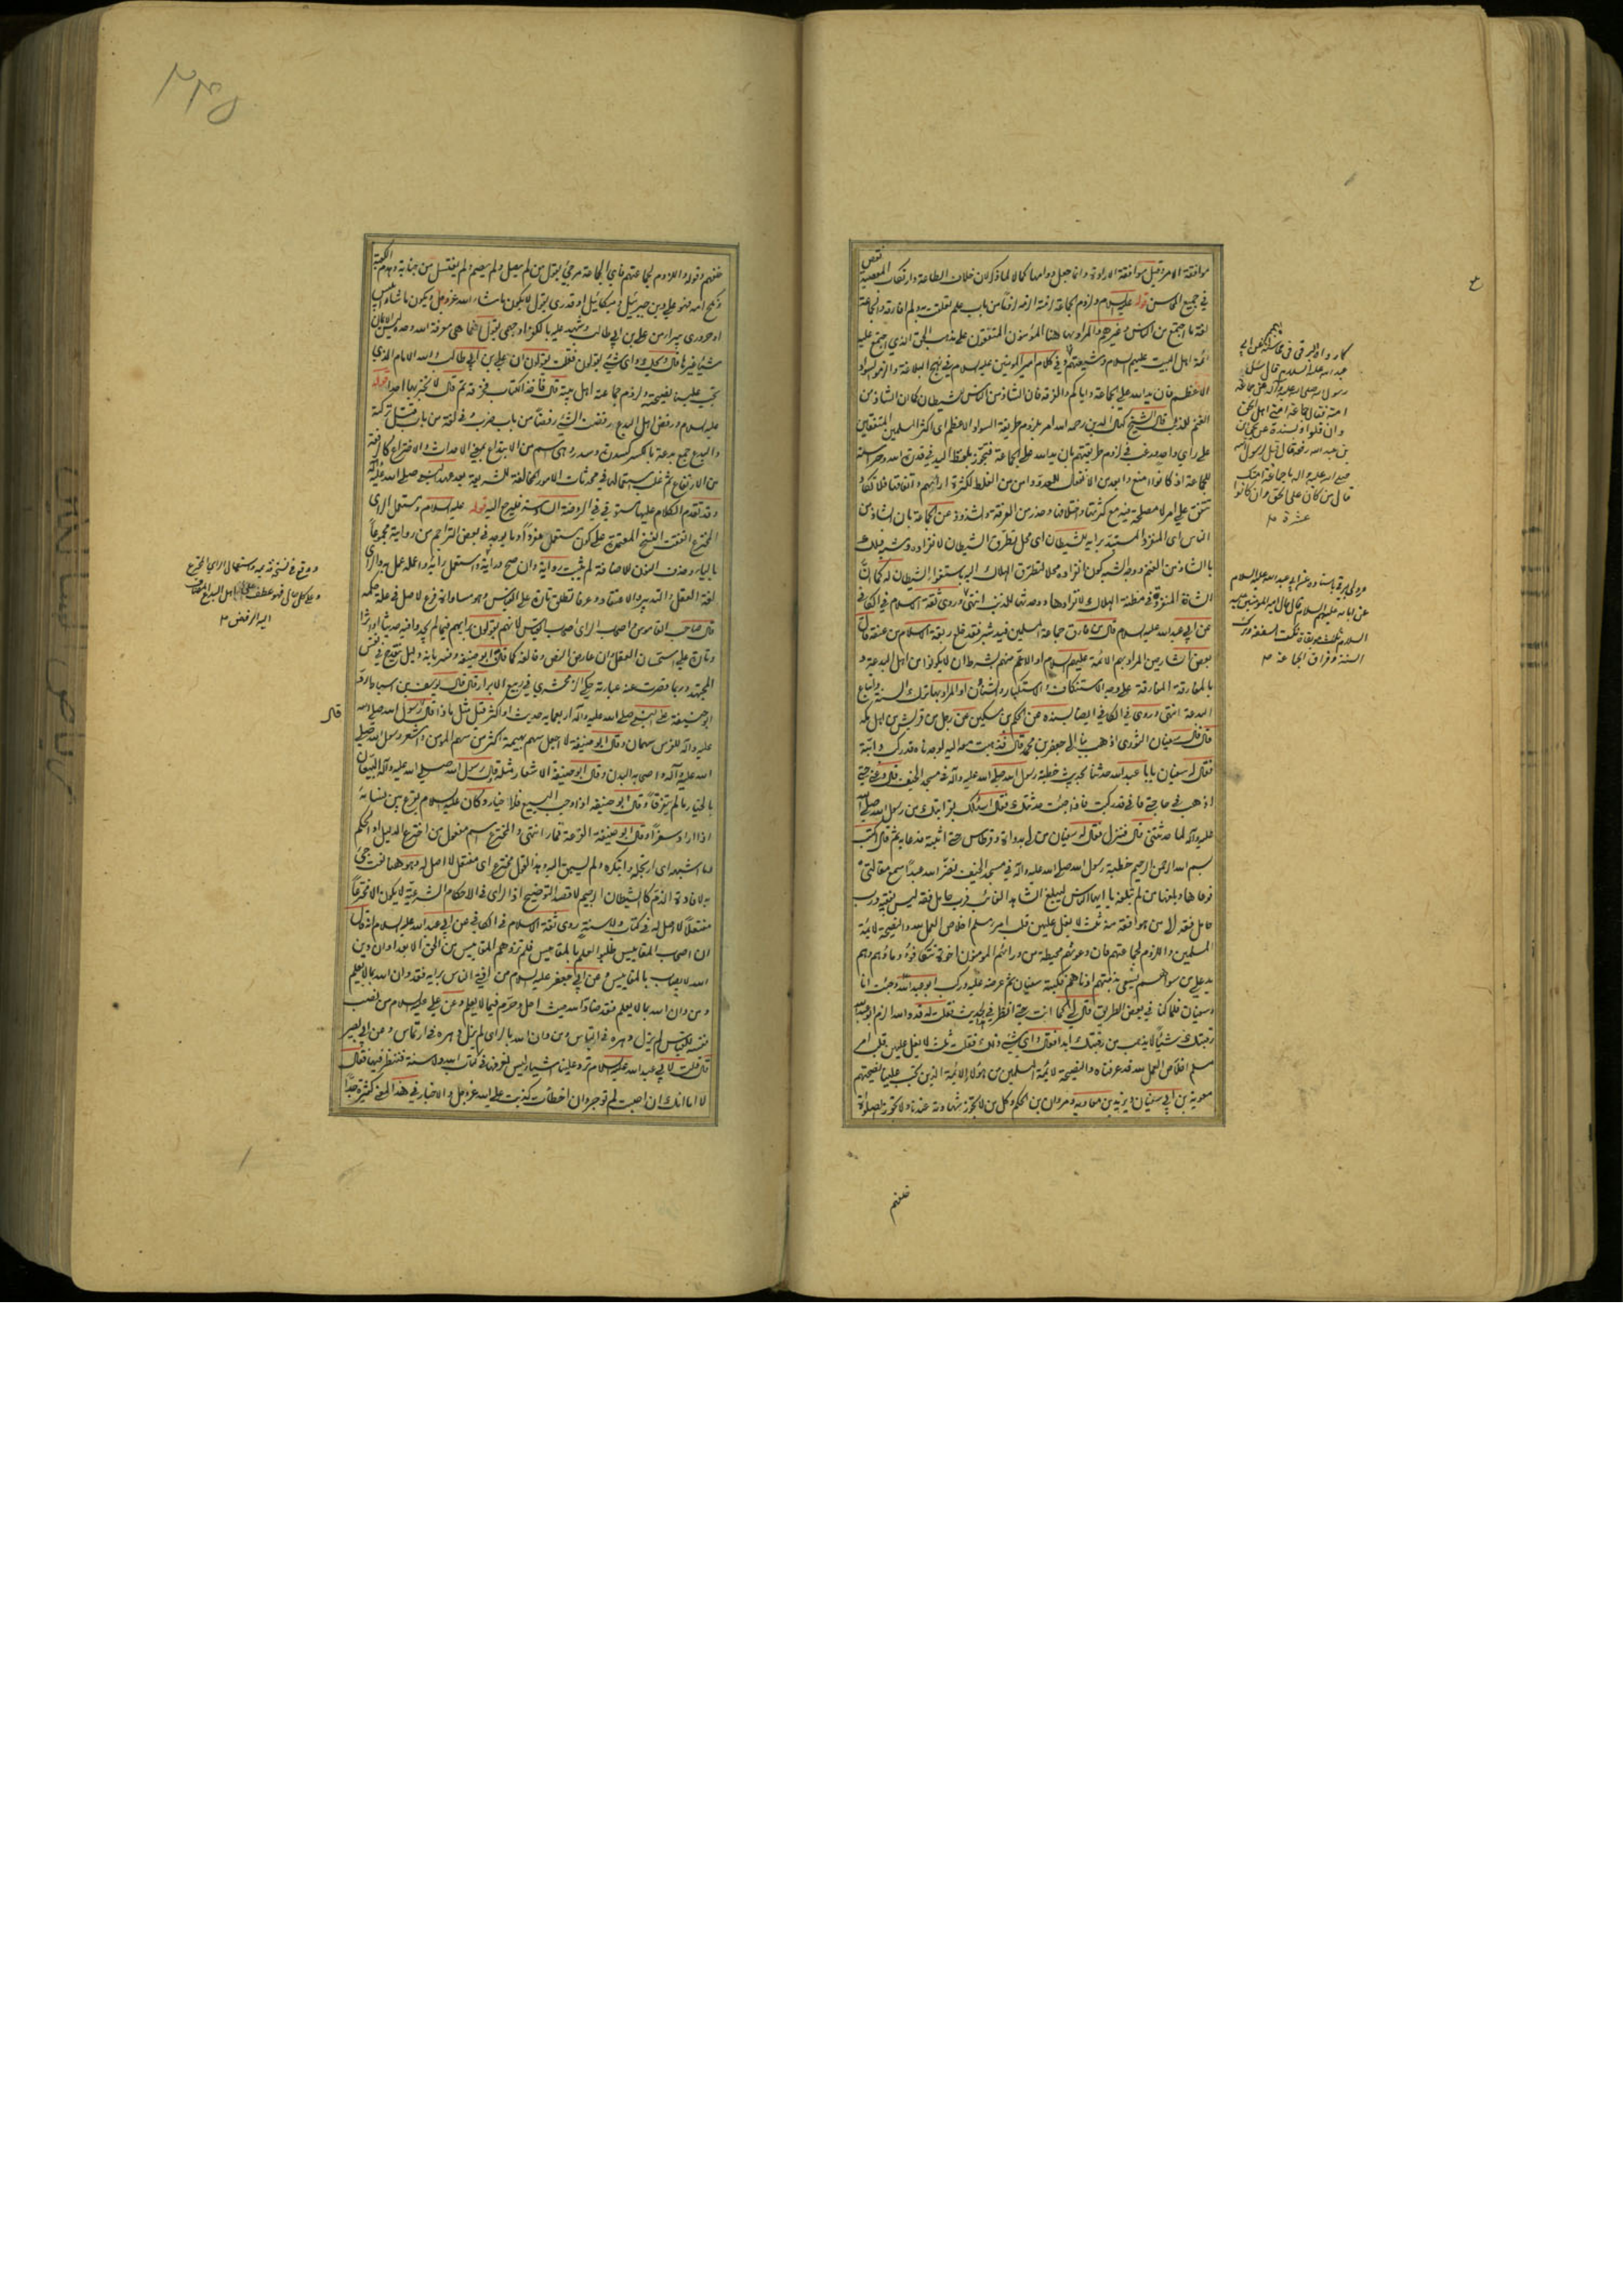 موافقة الامر وقيل موافقة الارادة وانما جعل دوامها كمالا لما ذكر لان خلاف الطاعة وارتكاب المعصية نقص
في جميع قوله عليه السلام ولزوم الجماعة لزمت الزمه لزما من باب علم تعلقت به ولم افارقه والجماعة
لغة ما اجتمع من الناس وغيرهم والمراد بها هنا المؤمنون المتفقون على مذهب الحق الذي اجتمع عليه
ائمة اهل البيت عليهم السلام وشيعتهم وفي كلام امير المؤمنين عليه السلام في نهج البلاغة والزموا السواد
الاعظم فان يد الله على الجماعة واياكم والفرقة فان الشاذ من الناس للشيطان كما ان الشاذ من
الغنم للذئب قال الشيخ كمال الدين رحمه الله امر بلزوم طريقة السواد الاعظم اى اكثر المسلمين المتفقين
على راي واحد ورغب في لزوم طريقتهم بان يد الله على الجماعة فتجوز بلفظ اليد في قدرة الله وحراسته
للجماعة اذ كانوا امنع وابعد من الانفعال للعدو وامن من الغلط لكثرة ارائهم واتفاقها فلا تكاد
تتفق على امر لا مصلحة فيه مع كثرتها واختلافها وحذر من الفرقة والشذوذ عن الجماعة بان الشاذ من
الناس اى المنفرد المستبد برايه للشيطان اى محل تطرق الشيطان لانفراده وشبه ذلك
بالشاذ من الغنم ووجه الشبه كون انفراده محلا لتطرق الهلاك اليه باستغواء الشيطان له كما ان
الشاة المنفردة في مظنة الهلاك لانفرادها ووحدتها للذئب انتهى وروى ثقة الاسلام في الكافي
عن ابي عبد الله عليه السلام قال من فارق جماعة المسلمين قيد شبر فقد خلع ربقة الاسلام من عنقه قال
بعض الشارحين المراد بهم الائمة عليهم السلام او الاعم منهم بشرط ان لا يكونوا من اهل البدعة و
بالمفارقة المفارقة على وجه الاستنكاف والاستكبار والشناَن او المراد بها ترك السنة واتباع
البدعة انتهى وروى في الكافي ايضا بسنده عن الحكم بن مسكين عن رجل من قريش من اهل مكة
قال قال سفيان الثوري اذهب بنا الى جعفر بن محمد قال فذهبت معه اليه فوجدناه قد ركب دابته
فقال له سفيان يا ابا عبد الله حدثنا بحديث خطبة رسول الله صلى الله عليه وآله في مسجد الخيف قال دعني حتى
اذهب في حاجتي فاني قد ركبت فاذا جئت حدثتك فقال اسئلك بقرابتك من رسول الله صلى الله
عليه وآله لما حدثتني قال فنزل فقال له سفيان مر لى بدواة وقرطاس حتى اثبته فدعا به ثم قال اكتب
بسم الله الرحمن الرحيم خطبة رسول الله صلى الله عليه وآله في مسجد الخيف نضر الله عبدا سمع مقالتي
فوعاها وبلغها من لم تبلغه يا ايها الناس ليبلغ الشاهد الغائب فرب حامل فقه ليس بفقيه ورب
حامل فقه الى من هو افقه منه ثلث لا يغل عليهن قلب امرء مسلم اخلاص العمل لله والنصيحة لائمة
المسلمين واللزوم لجماعتهم فان دعوتهم محيطة من ورائهم المؤمنون اخوة تتكافؤ دماؤهم وهم
يد على من سواهم يسعى بذمتهم ادناهم فكتبه سفيان ثم عرضه عليه وركب ابو عبد الله وجئت انا
وسفيان فلما كنا في بعض الطريق قال لي كما انت حتى انظر في الحديث فقلت له قد والله الزم ابو عبد الله
رقبتك شيئا لا يذهب من رقبتك ابدا فقال واي شيئ ذلك فقلت ثلث لا يغل عليهن قلب امرء
مسلم اخلاص العمل لله قد عرفناه والنصيحة لائمة المسلمين من هؤلاء الائمة الذين تجب علينا نصيحتهم
معوية بن ابي سفيان ويزيد بن معاوية ومروان بن الحكم وكل من لا تجوز شهادته عندنا ولا تجوز الصلوة
خلفهم
كما رواه البرقي في محاسنه عن ابي
عبد الله عليه السلام قال سئل
رسول الله صلى الله عليه وآله عن جماعة
امته فقال جماعة امتي اهل الحق
وان قلوا وبسنده عن
بن عبد الله رفعه قال قيل لرسول الله
صلى الله عليه واله ما جماعة امتك
قال من كان على الحق وان كانوا
عشرة
وروى البرقي باسناده عن ابي عبد الله عليه السلام
عن ابائه عليهم السلام قال قال امير المؤمنين عليه
السلام ثلث موبقات نكث الصفقة وترك
السنة وفراق الجماعة
٢٣٥
خلفهم وقوله واللزوم لجماعتهم فاي الجماعة مرجئ يقول من لم يصل ولم يصم ولم يغتسل من جنابة وهدم الكعبة
ونكح امه فهو على دين جبرئيل وميكائيل او قدري يقول لا يكون ما شاء الله عز وجل ويكون ما شاء ابليس
او حروري يبرأ من على بن ابي طالب وشهد عليه بالكفر او جهمي يقول انما هي معرفة الله وحده ليس الايمان
شيئا غيرها قال ويحك واى شئ يقولون فقلت يقولون ان على بن ابي طالب والله الامام الذي
تجب علينا نصيحته ولزوم جماعة اهل بيته قال فاخذ الكتاب فخرقه ثم قال لا تخبر بها احدا قوله
عليه السلام ورفض اهل البدع رفضت الشئ رفضا من باب ضرب وفي لغة من باب قتل تركته
والبدع جمع بدعة بالكسر كسدرة وسدر وهى اسم من الابتداع بمعنى الاحداث والاختراع كالرفعة
من الارتفاع ثم غلب استعمالها في محدثات الامور المخالفة للشريعة بعد عهد النبي صلى الله عليه وآله
وقد تقدم الكلام عليها مستوفى في الروضة السابعة فليرجع اليه قوله عليه السلام ومستعمل الراى
المخترع اتفقت النسخ المعتبرة على كون مستعمل مفردا وما يوجد في بعض التراجم من روايته مجموعا
بالياء وحذف النون للاضافة لم تثبت رواية وان صح دراية واستعمل رائه واعمله عمل به والراى
لغة العقل والتدبير والاعتقاد وعرفا يطلق تارة على القياس وهو مساواة فرع لاصل في علة حكمه
قال صاحب القاموس اصحاب الراى اصحاب القياس لانهم يقولون برايهم فيما لم يجدوا فيه حديثا او اثرا
وتارة على استحسان العقل وان عارض النص وخالفه كما قال ابو حنيفة وفسر بانه دليل ينقدح في نفس
المجتهد وربما قصرت عنه عبارته حكى الزمخشري في ربيع الابرار قال قال يوسف بن اسباط رد
ابو حنيفة على النبي صلى الله عليه وآله اربعمائة حديث او اكثر قيل مثل ماذا قال قال رسول الله صلى الله
عليه وآله للفرس سهمان وقال ابو حنيفة لا اجعل سهم بهيمة اكثر من سهم المؤمن واشعر رسول الله صلى
الله عليه وآله واصحابه البدن وقال ابو حنيفة الاشعار مثلة وقال رسول الله صلى الله عليه وآله البيعان
بالخيار ما لم يتفرقا وقال ابو حنيفة اذا وجب البيع فلا خيار وكان عليه السلام يقرع بين نسائه
اذا اراد سفرا وقال ابو حنيفة القرعة قمار انتهى والمخترع اسم مفعول من اخترع الدليل او الحكم
اى ارتجله وابتكره ولم يسبق اليه وهذا القول مخترع اى مفتعل لا اصل له وهو هنا نعت جئ
به لافادة الذم كالشيطان الرجيم لا قصد التوضيح اذ الراى في الاحكام الشرعية لا يكون الا مخترعا
مفتعلا لا اصل له في كتاب ولا سنة روى ثقة الاسلام في الكافي عن ابي عبد الله عليه السلام انه قال
ان اصحاب المقاييس طلبوا العلم بالمقاييس فلم تزدهم المقاييس من الحق الا بعدا وان دين
الله لا يصاب بالمقاييس وعن ابي جعفر عليه السلام من افتى الناس برايه فقد دان الله بما لا يعلم
ومن دان الله بما لا يعلم فقد ضاد الله حيث احل وحرم فيما لا يعلم وعن علي عليه السلام من نصب
نفسه للقياس لم يزل دهره في التباس ومن دان الله بالراى لم يزل دهره في ارتماس وعن ابي بصير
قال قلت لابي عبد الله عليه السلام ترد علينا اشياء ليس نعرفها في كتاب الله ولا سنة فننظر فيها فقال
لا اما انك ان اصبت لم توجر وان اخطأت كذبت على الله عز وجل والاخبار في هذا المعنى كثيرة جدا
ووقع في نسخة قديمة واستعمال الراى المخترع
وعلى كل حال فهو عطف على اهل البدع المضاف
اليه الرفض
قال